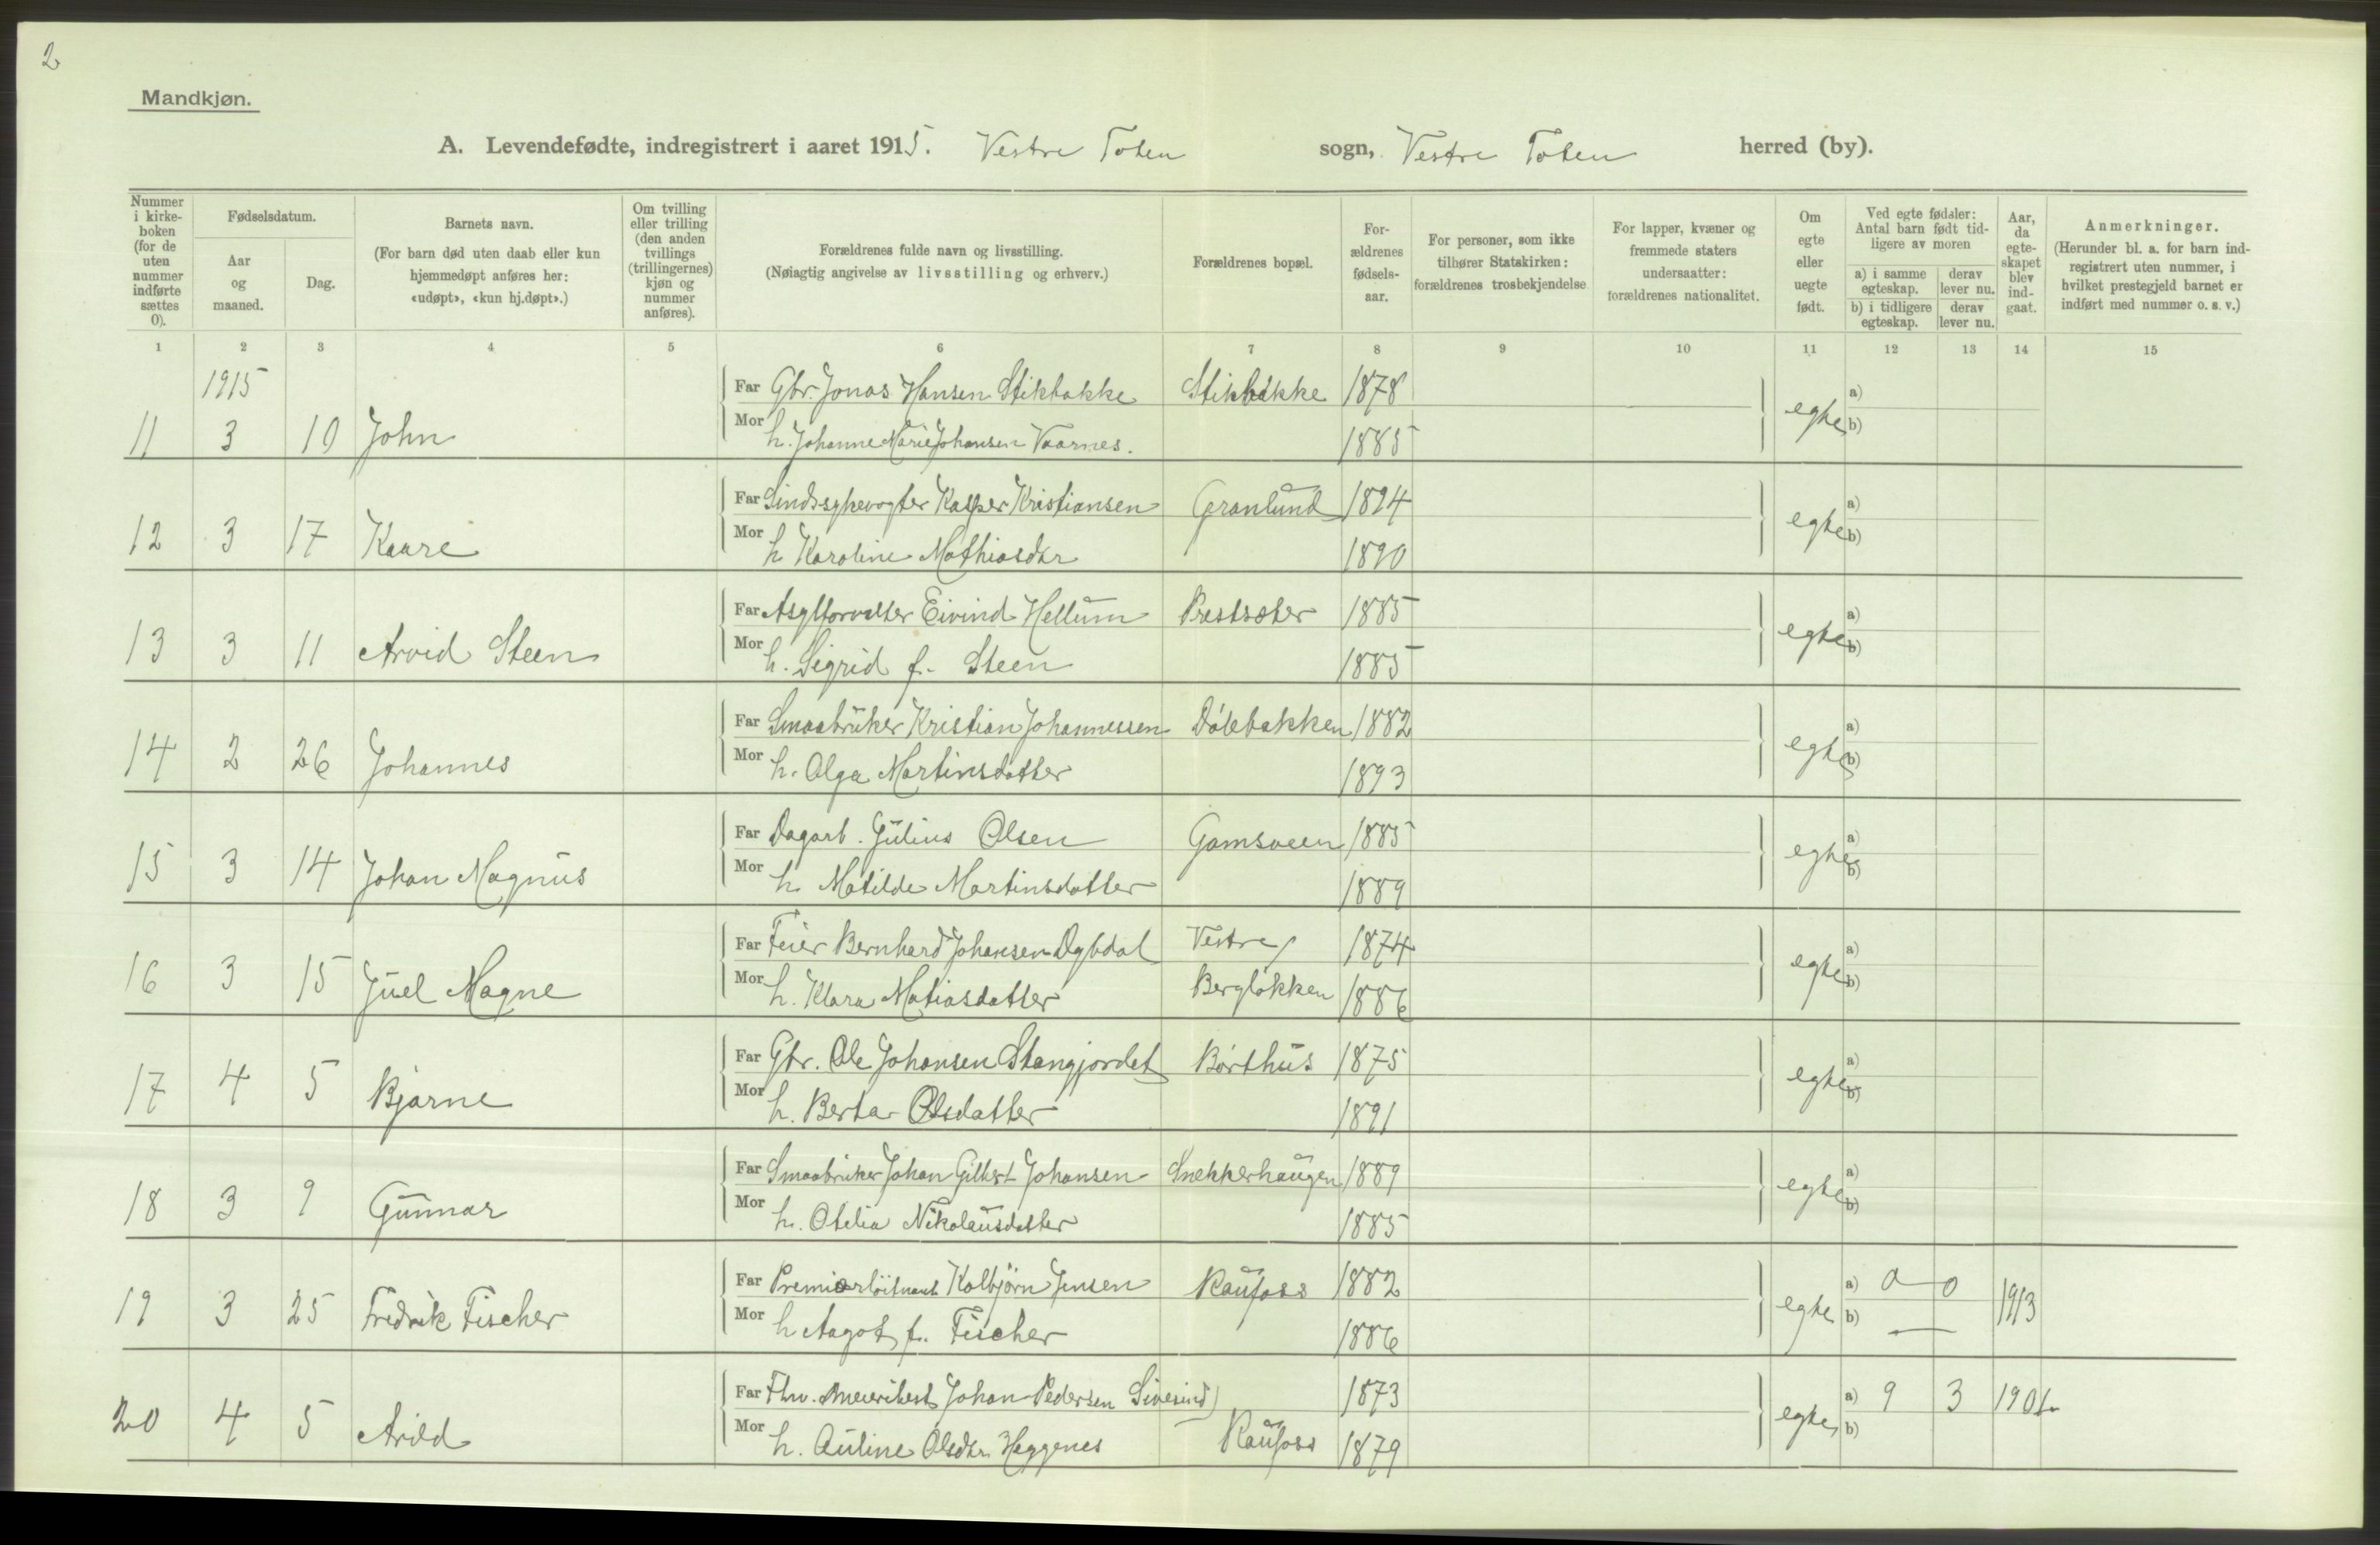 2
Mandkjøn.
A. Levendefødte, indregistrert i aaret 1915. Vestre Toten sogn, Vestre Toten herred (by).
Nummer i kirke-boken (for de uten nummer indførte sættes 0).
Fødselsdatum.
Aar og maaned.
Dag.
Barnets navn.
(For barn død uten daab eller kun hjemmedøpt anføres her: «udøpt», «kun hj.døpt».)
Om tvilling eller trilling (den anden tvillings (trillingernes) kjøn og nummer anføres).
Forældrenes fulde navn og livsstilling.
(Nøiagtig angivelse av livsstilling og erhverv.)
Forældrenes bopæl.
For-ældrenes fødsels-aar.
For personer, som ikke tilhører Statskirken: forældrenes trosbekjendelse
For lapper, kvæner og fremmede staters undersaatter: forældrenes nationalitet.
Om egte eller uegte født.
Ved egte fødsler: Antal barn født tid-ligere av moren
a) i samme egteskap.
derav lever nu.
b) i tidligere egteskap.
derav lever nu.
Aar, da egte-skapet blev ind-gaat.
Anmerkninger.
(Herunder bl. a. for barn ind-registrert uten nummer, i hvilket prestegjeld barnet er indført med nummer o. s. v.)
1 2 3 4 5 6 7 8 9 10 11 12 13 14 15
1915 Far Gbr. Jonas Hansen Stikbakke Stikbakke 1878 a)
11 3 10 John Mor h. Johanne Marie Johansen Vaarnes. 1885 egte b)
Far Sindssykevogter Kasper Kristiansen Granlund 1894 a)
12 3 17 Kaare Mor h. Karoline Mathiasdtr 1890 egte b)
Far Asylforvalter Eivind Hellum Prestsæter 1885 a)
13 3 11 Arvid Steen Mor h. Sigrid f. Steen 1885 egte b)
Far Smaabruker Kristian Johannessen Dølebakken 1882 a)
14 2 26 Johannes Mor h. Olga Martinsdatter 1893 egte b)
Far Dagarb. Julius Olsen Gamsveen 1885 a)
15 3 14 Johan Magnus Mor h. Matilde Martinsdatter 1889 egte b)
Far Feier Bernhard Johansen Dybdal Vestre 1874 a)
16 3 15 Juel Magne Mor h. Klara Matiasdatter Bergløkken 1886 egte b)
Far Gbr. Ole Johansen Stangjordet Børthus 1875 a)
17 4 5 Bjarne Mor h. Berta Olsdatter 1891 egte b)
Far Smaabruker Johan Gilbert Johansen Snekkerhaugen 1889 a)
18 3 9 Gunnar Mor h. Otelia Nikolausdatter 1885 egte b)
Far Premierløitnant Kolbjørn Jensen Raufoss 1882 a) 0 0
19 3 25 Fredrik Fischer Mor h. Aagot f. Fischer 1886 egte b) — 1913
Far Fhv. meieribest. Johan Pedersen Sivesind 1873 a) 9 3 1901
20 4 5 Arild Mor h. Auline Olsdtr. Heggenes Raufoss 1879 egte b)